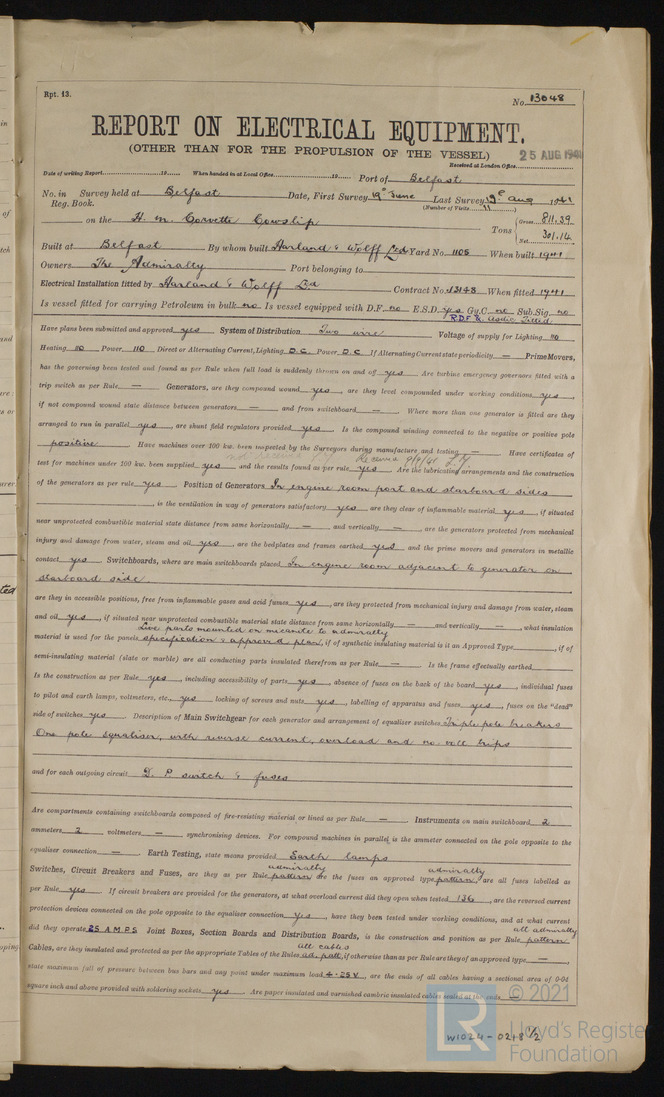 Rpt. 13.
No. 13048
REPORT ON ELECTRICAL EQUIPMENT.
(OTHER THAN FOR THE PROPULSION OF THE VESSEL)
25 AUG 1941
Received at London Office
Date of writing Report 19 When handed in at Local Office 19 Port of Belfast
No. in Survey held at Belfast Date, First Survey 19th June Last Survey 19th Aug 1941
Reg. Book. (Number of Visits 11)
on the H. M. Corvette Cowslip Tons Gross 811.39 Net 301.14
Built at Belfast By whom built Harland & Wolff Ltd Yard No. 1105 When built 1941
Owners The Admiralty Port belonging to
Electrical Installation fitted by Harland & Wolff Ltd Contract No. 13148 When fitted 1941
Is vessel fitted for carrying Petroleum in bulk no Is vessel equipped with D.F. no E.S.D. yes Gy.C. no Sub.Sig. no
R.D.F. & Asdic fitted.
Have plans been submitted and approved yes System of Distribution Two wire Voltage of supply for Lighting 110
Heating 110 Power 110 Direct or Alternating Current, Lighting D.C. Power D.C. If Alternating Current state periodicity — Prime Movers,
has the governing been tested and found as per Rule when full load is suddenly thrown on and off yes Are turbine emergency governors fitted with a
trip switch as per Rule — Generators, are they compound wound yes, are they level compounded under working conditions yes,
if not compound wound state distance between generators — and from switchboard — Where more than one generator is fitted are they
arranged to run in parallel yes, are shunt field regulators provided yes Is the compound winding connected to the negative or positive pole
positive Have machines over 100 kw. been inspected by the Surveyors during manufacture and testing — Have certificates of
not received Received 9/9/41
test for machines under 100 kw. been supplied yes and the results found as per rule yes Are the lubricating arrangements and the construction
of the generators as per rule yes Position of Generators In engine room port and starboard sides
, is the ventilation in way of generators satisfactory yes are they clear of inflammable material yes, if situated
near unprotected combustible material state distance from same horizontally — and vertically —, are the generators protected from mechanical
injury and damage from water, steam and oil yes, are the bedplates and frames earthed yes and the prime movers and generators in metallic
contact yes Switchboards, where are main switchboards placed In engine room adjacent to generator on
starboard side
are they in accessible positions, free from inflammable gases and acid fumes yes, are they protected from mechanical injury and damage from water, steam
and oil yes, if situated near unprotected combustible material state distance from same horizontally — and vertically —, what insulation
Live parts mounted on micanite to admiralty
material is used for the panels specification & approved plan, if of synthetic insulating material is it an Approved Type, if of
semi-insulating material (slate or marble) are all conducting parts insulated therefrom as per Rule — Is the frame effectually earthed
Is the construction as per Rule yes, including accessibility of parts yes, absence of fuses on the back of the board yes, individual fuses
to pilot and earth lamps, voltmeters, etc. yes locking of screws and nuts yes, labelling of apparatus and fuses yes, fuses on the "dead"
side of switches yes Description of Main Switchgear for each generator and arrangement of equaliser switches Triple pole breakers
One pole equaliser, with reverse current, overload and no-volt trips
and for each outgoing circuit D. P. switch & fuses
Are compartments containing switchboards composed of fire-resisting material or lined as per Rule — Instruments on main switchboard 2
ammeters 2 voltmeters — synchronising devices. For compound machines in parallel is the ammeter connected on the pole opposite to the
equaliser connection — Earth Testing, state means provided Earth lamps
admiralty admiralty
Switches, Circuit Breakers and Fuses, are they as per Rule pattern are the fuses an approved type pattern, are all fuses labelled as
per Rule yes If circuit breakers are provided for the generators, at what overload current did they open when tested 136, are the reversed current
protection devices connected on the pole opposite to the equaliser connection yes, have they been tested under working conditions, and at what current
all admiralty
did they operate 25 AMPS Joint Boxes, Section Boards and Distribution Boards, is the construction and position as per Rule pattern
all cables
Cables, are they insulated and protected as per the appropriate Tables of the Rules ad. patt, if otherwise than as per Rule are they of an approved type —,
state maximum fall of pressure between bus bars and any point under maximum load 4.25 V, are the ends of all cables having a sectional area of 0.04
square inch and above provided with soldering sockets yes Are paper insulated and varnished cambric insulated cables sealed at the ends —
© 2021
LR
Lloyd's Register
Foundation
W1024-0218 1/2